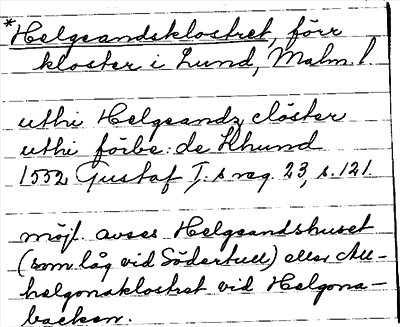 *Helgeandsklostret, förr
kloster i Lund, Malm. l.
uthi Helgeandz clöster
uthi förbe: de Lhund
1552 Gustaf I:s reg. 23, s. 121.
möjl. avses Helgeandshuset
(som låg vid Södertull) eller All-
helgonaklostret vid Helgona-
backen.